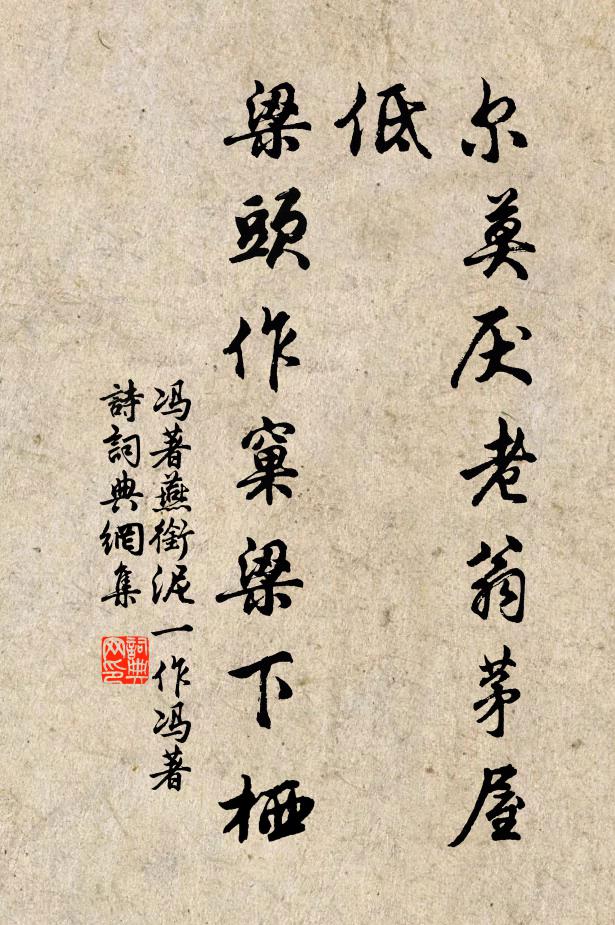 尔莫厌老翁茅屋
低
梁头作窠梁下栖
冯著燕衔泥一作冯著
詩詞典網集
詞典
网印